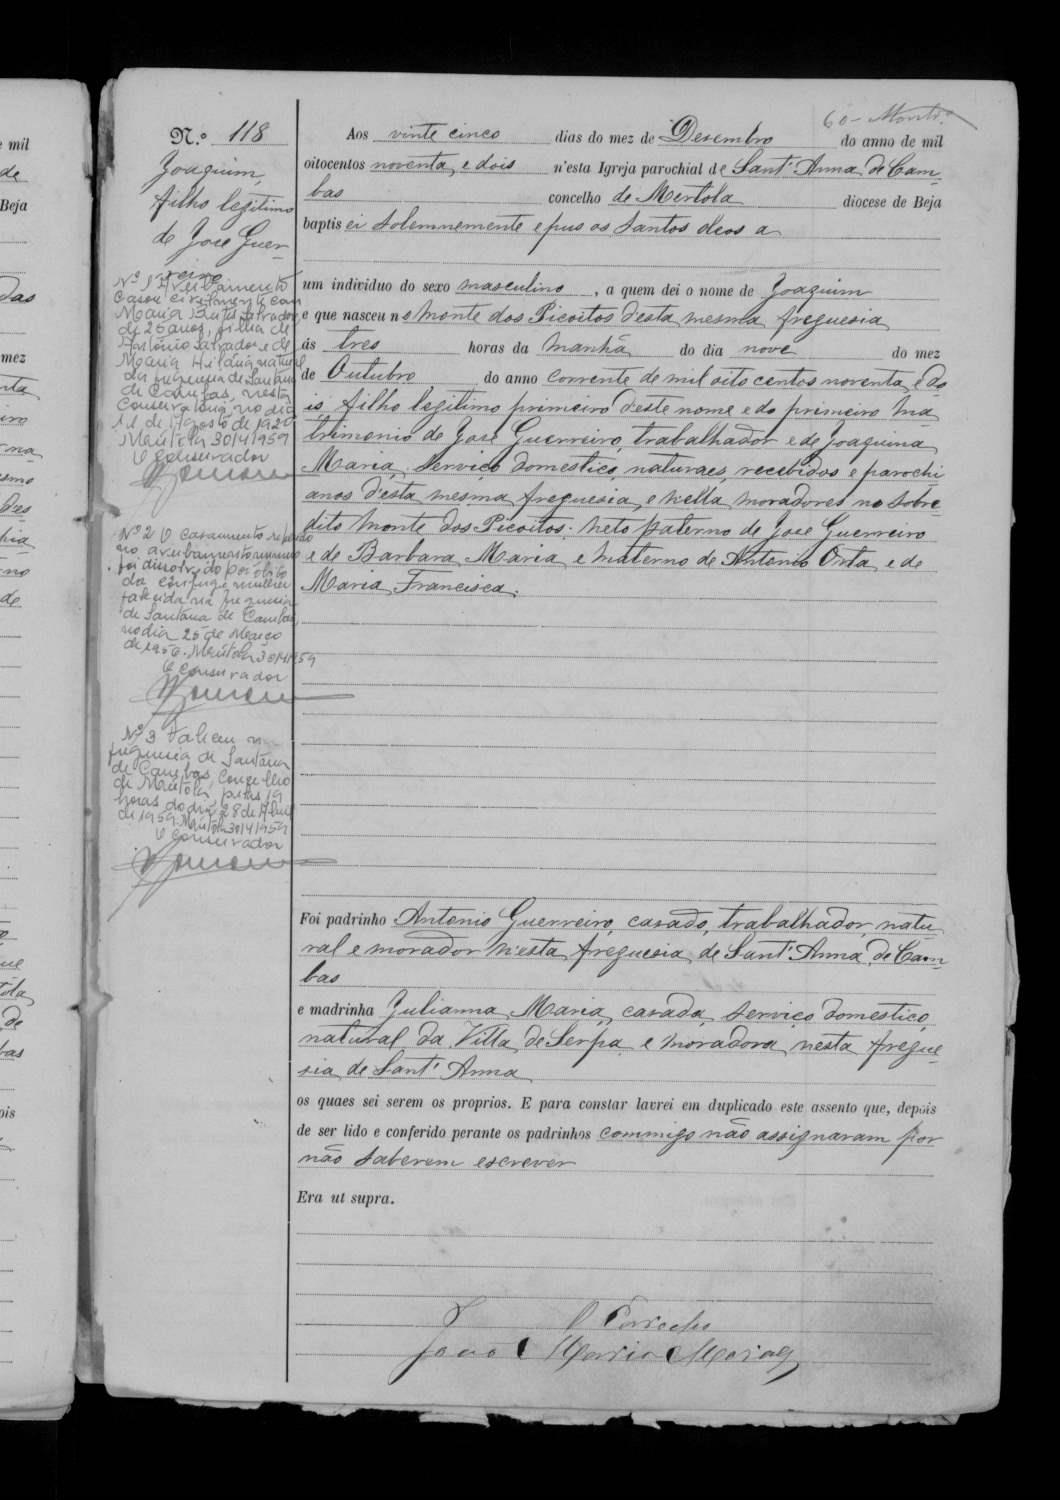 60 - Montr.
N.º 118
Joaquim,
filho legitimo
de José Guer-
reiro
Aos vinte cinco dias do mez de Desembro do anno de mil
oitocentos noventa e dois n'esta Igreja parochial de Sant' Anna de Cam-
bas concelho de Mertola diocese de Beja
baptisei solemnemente e pus os Santos oleos a
um individuo do sexo masculino, a quem dei o nome de Joaquim
e que nasceu no Monte dos Picoitos desta mesma freguesia
ás tres horas da manhã do dia nove do mez
de Outubro do anno corrente de mil oito centos noventa e do-
is, filho legitimo primeiro d'este nome e do primeiro ma-
trimonio de José Guerreiro, trabalhador e de Joaquina
Maria, serviço domestico, naturaes, recebidos e parochi
anos d'esta mesma freguesia, e n'ella moradores no sobre-
dito monte dos Picoitos: neto paterno de José Guerreiro
e de Barbara Maria e materno de Antonio Orta e de
Maria Francisca.
Nº 1 Averbamento
Casou civilmente com
Maria Bentes Salvador,
de 26 anos, filha de
António Salvador e de
Maria Hilária, natural
da freguesia de Santana
de Cambas, nesta
Conservatória, no dia
de Agosto de 1920
Mértola 30/4/1959
O Conservador
Nº 2 O casamento referido
no averbamento numero
foi dissolvido por óbito
da cônjuge mulher
falecida na freguesia
de Santana de Cambas,
no dia 25 de Março
de 1956. Mértola 30/4/1959
O Conservador
Nº 3 Faleceu na
freguesia de Santana
de Cambas, Concelho
de Mértola, pelas 19
horas do dia 28 de Abril
de 1959. Mértola 30/4/1959
O Conservador
Foi padrinho Antonio Guerreiro, casado, trabalhador, natu-
ral e morador n'esta freguesia de Sant' Anna de Cam-
bas
e madrinha Julianna Maria, casada, serviço domestico,
natural da Villa de Serpa e moradora nesta fregue-
sia de Sant' Anna
os quaes sei serem os proprios. E para constar lavrei em duplicado este assento que, depois
de ser lido e conferido perante os padrinhos commigo não assignaram por
não saberem escrever
Era ut supra.
O Parocho
João Maria